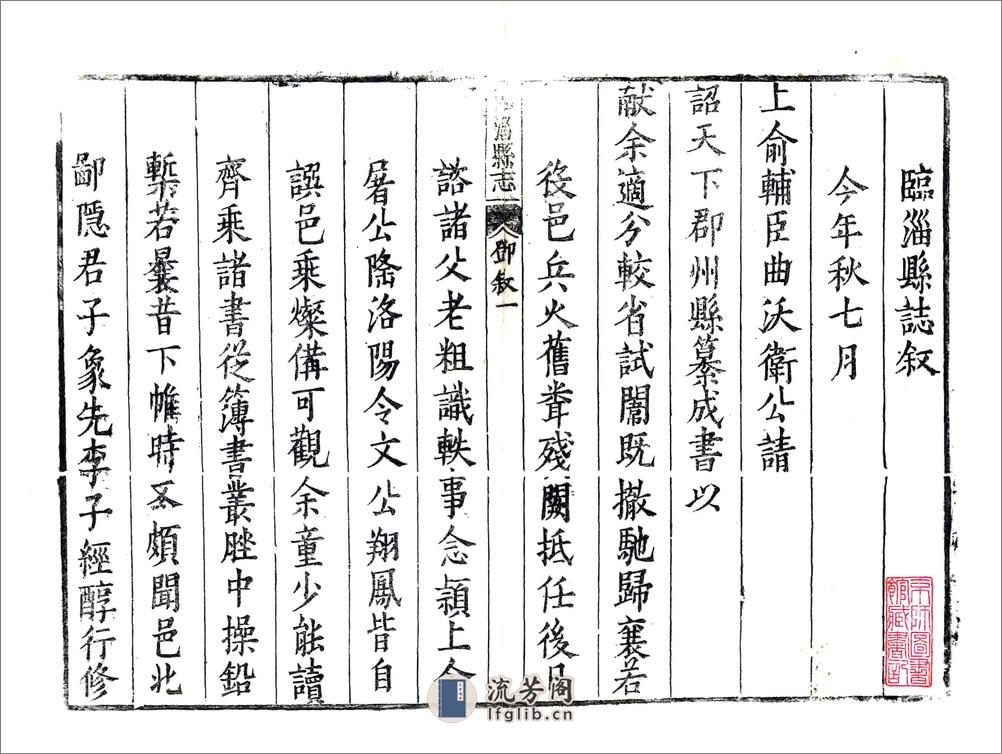 臨淄縣誌叙
今年秋七月
上俞輔臣曲沃衛公請
詔天下郡州縣纂成書以
献余適分較省試闈既撤馳歸襄若
役邑兵火舊耷殘闕抵任後日
淄縣志
鄧叙一
諮諸父老粗識軼事念潁上令
屠公隆洛陽令文公翔鳳皆自
譔邑乘燦備可觀余童少能讀
齊乘諸書從簿書叢脞中操鉛
槧若曩昔下帷時亟頗聞邑北
鄙隱君子象先李子經醇行修
京師圖書館藏書記
流芳阁
lfglib.cn